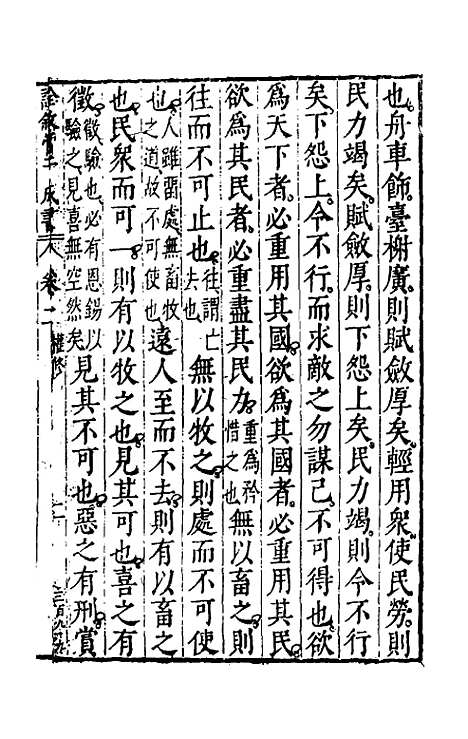 也舟車飾臺榭廣則賦斂厚矣輕用衆使民勞則
民力竭矣賦斂厚則下怨上矣民力竭則令不行
矣下怨上令不行而求敵之勿謀己不可得也欲
爲天下者必重用其國欲爲其國者必重用其民
欲爲其民者必重盡其民力重爲矜惜之也無以畜之則
往而不可止也往謂亡去也無以牧之則處而不可使
也人雖留處無畜牧之道故不可使也遠人至而不去則有以畜之
也民衆而可一則有以牧之也見其可也喜之有
徵徵驗也必有恩錫以驗之見喜無空然矣見其不可也惡之有刑賞
卷二 權修